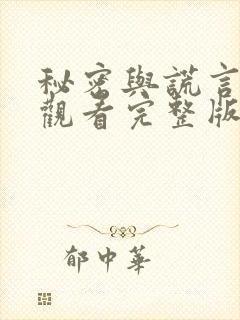 秘密與謊言
觀看完整版
郁中華